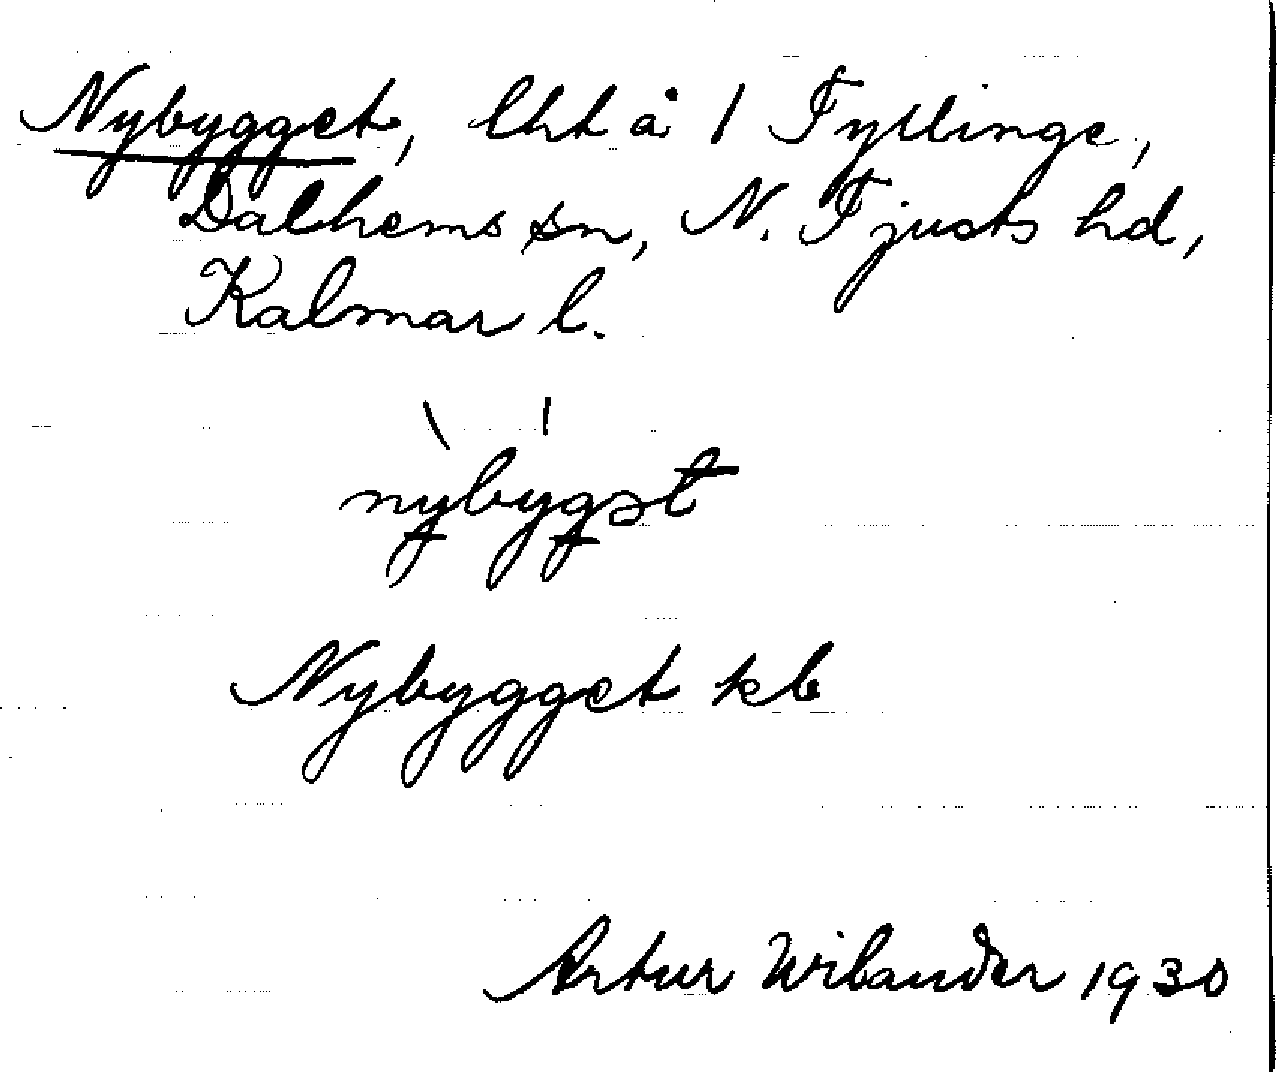 Nybygget, lht å 1 Fyllinge,
Dalhems sn, N. Tjusts hd,
Kalmar l.
nybygət
Nybygget kb
Artur Wilander 1930